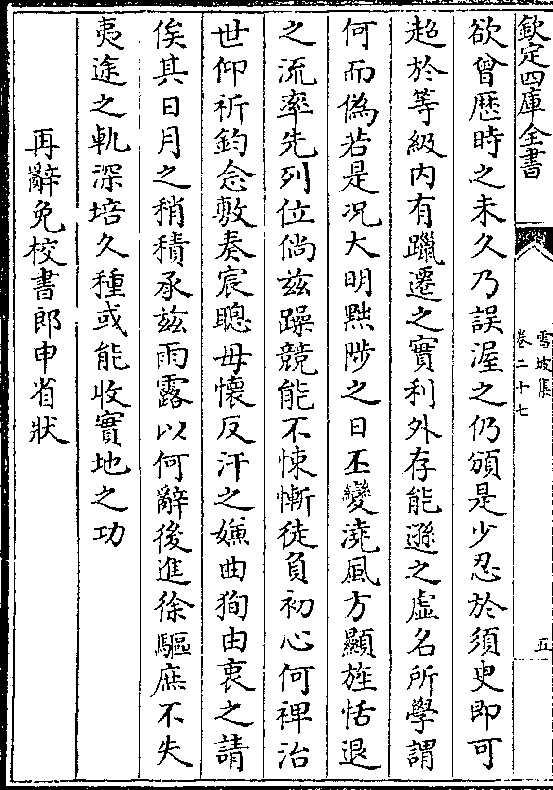 欽定四庫全書
雪坡集
卷二十七
五
欲曾歴時之未久乃誤渥之仍頒是少忍於須史即可
超於等級内有躐遷之實利外存能遜之虚名所學謂
何而偽若是况大明黜陟之日丕變澆風方顯旌恬退
之流率先列位倘兹躁競能不悚慚徒負初心何禆治
世仰祈鈞念敷奏宸聰毋懷反汗之嫌曲狥由衷之請
俟其日月之稍積承兹雨露以何辭後進徐驅庶不失
夷途之軌深培久種或能收實地之功
再辭免校書郎申省狀